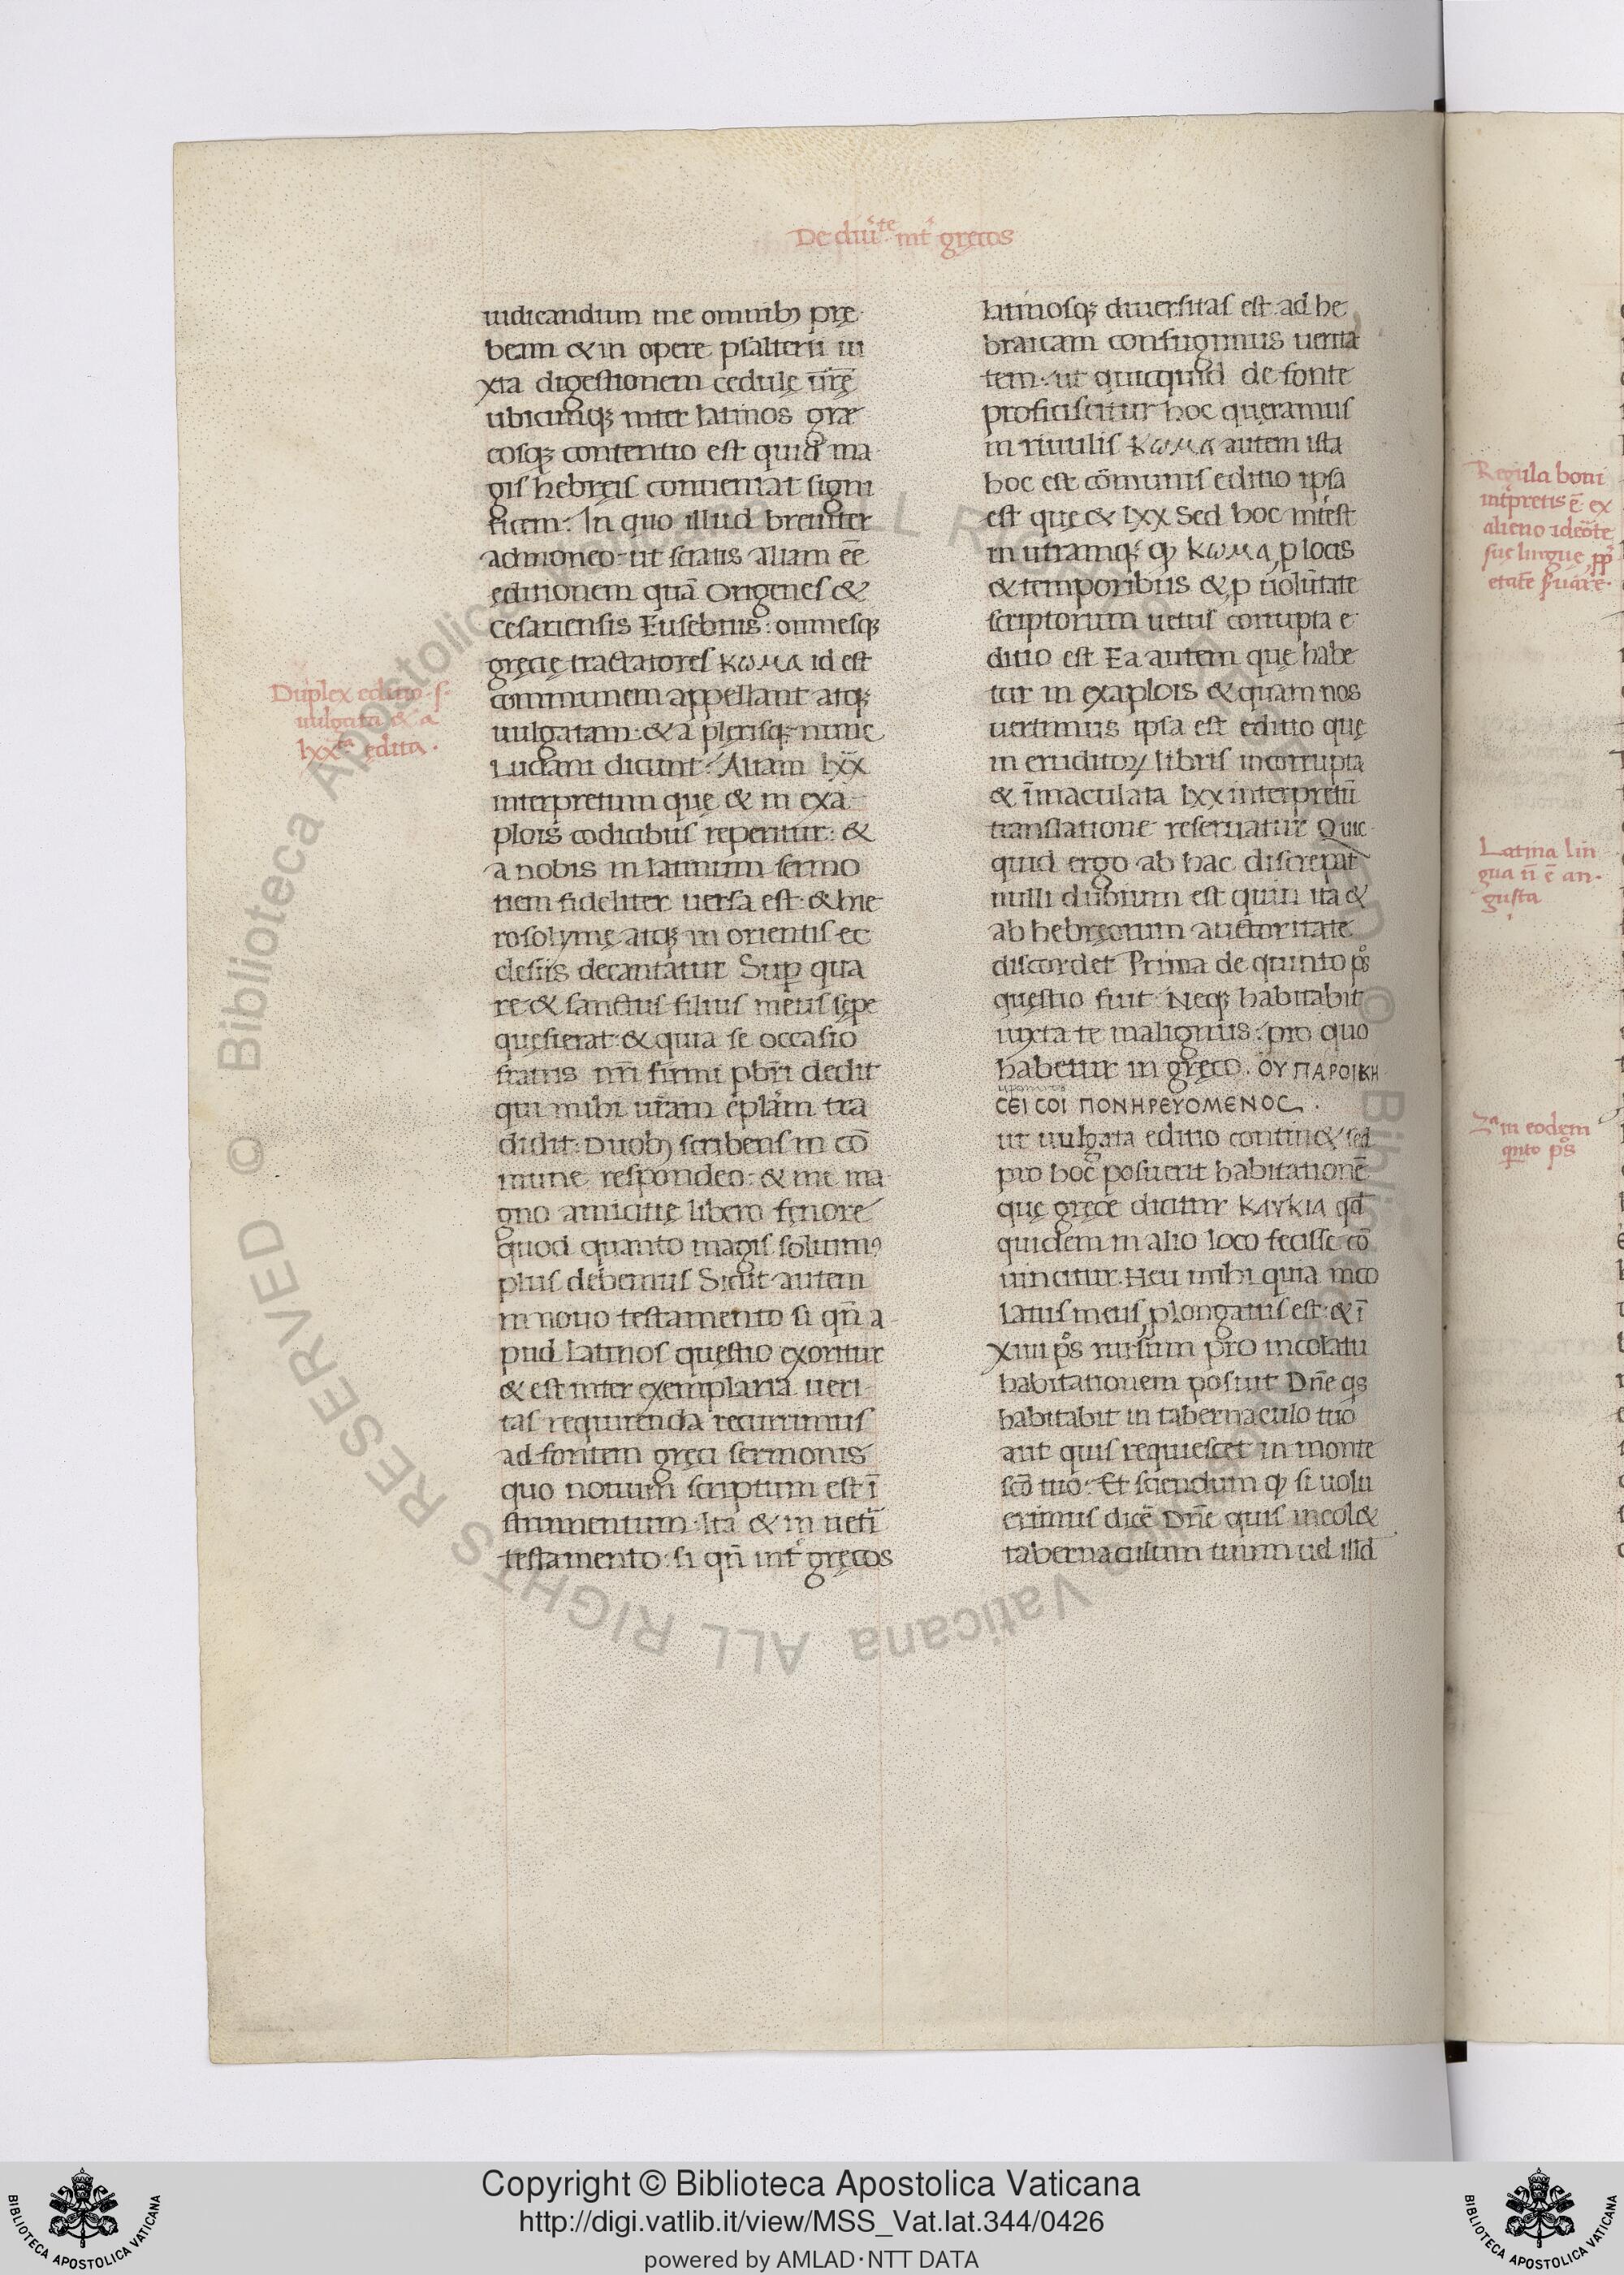 De diu'te int' gręcos
iudicandum me omnibꝫ prę
beam & in opere psalterii iu
xta digestionem cedulę ūrę
ubicunqꝫ inter latinos gre
cosqꝫ contentio est quid ma
gis hebręis conueniat signi
ficem. In quo illud breuiter
admoneo ut sciatis aliam ēē
ęditionem quā Origenes &
Cesariensis Eusebius: omnesqꝫ
gręcię tractatores κωμα id est
communem appellant atqꝫ
uulgatam: & a plerisqꝫ nunc
Luciani dicunt. Aliam lxx
interpretum quę & in exa
plois codicibus reperitur: &
a nobis in latinum sermo
nem fideliter uersa est: & hie
rosolymę atqꝫ in orientis ec
clesiis decantatur Suꝑ qua
re & sanctus filius meus sępe
quęsierat: & quia se occasio
fratris nr̄i firmi pbr̄i dedit
qui mihi ur̄am ēplam tra
didit: Duobꝫ scribens in cō
mune respondeo: & me ma
gno amicitię libero fęnore
quod quanto magis soluimꝰ
plus debemus Sicut autem
in nouo testamento si qn̄ a
pud Latinos questio exoritur
& est inter exemplaria ueri
tas requirenda recurrimus
ad fontem gręci sermonis
quo nouum scriptum est ī
strumentum. Ita & in uetī
testamento: si qn̄ int' gręcos
Duplex editio .s.
uulgata & a
lxxta ędita.
latinosqꝫ diuersitas est ad he
braicam confugimus uerita
tem: ut quicquid de fonte
proficiscitur hoc queramus
in riuulis κωμα autem ista
hoc est cōmunis editio ipsa
est quę & lxx Sed hoc int'est
in utramqꝫ ꝙ κωμα ꝓ locis
& temporibus & ꝓ uolūtate
scriptorum uetus corrupta e
ditio est Ea autem quę habe
tur in exaplois & quam nos
uertimus ipsa est editio quę
in eruditoꝝ libris incorrupta
& īmaculata lxx interpretū
translatione reseruatur Quic
quid ergo ab hac discrepat
nulli dubium est quin ita &
ab hebręorum auctoritate
discordet Prima de quinto ps
questio fuit Neqꝫ habitabit
iuxta te malignus: pro quo
habetur in gręco. ΟΥ ΠΑΡΟΙΚΗ
CEI COI ΠΟΝΗΡΕΥΟΜΕΝΟC.
ut uulgata editio contin& sed
pro hoc posuerit habitationē
quę gręce dicitur ΚΑΥΚΙΑ qd
quidem in alio loco fecisse cō
uincitur. Heu mihi quia inco
latus meus ꝓlongatus est: & ī
xiiii ps rursum pro incolatu
habitationem posuit Dn̄e qs
habitabit in tabernaculo tuo
aut quis requiescet in monte
scō tuo. Et sciendum ꝙ si uolu
erimus dicē Dn̄e quis incol&
tabernaculum tuum ud illd
Regula boni
int'pretis ē ex
alieno ideōte
suę linguę
Latina lin
gua n̄ ē an
gusta
2a in eodem
qnto ps
Copyright © Biblioteca Apostolica Vaticana
http://digi.vatlib.it/view/MSS_Vat.lat.344/0426
powered by AMLAD·NTT DATA
BIBLIOTECA APOSTOLICA VATICANA
BIBLIOTECA APOSTOLICA VATICANA
© Biblioteca Apostolica Vaticana ALL RIGHTS RESERVED